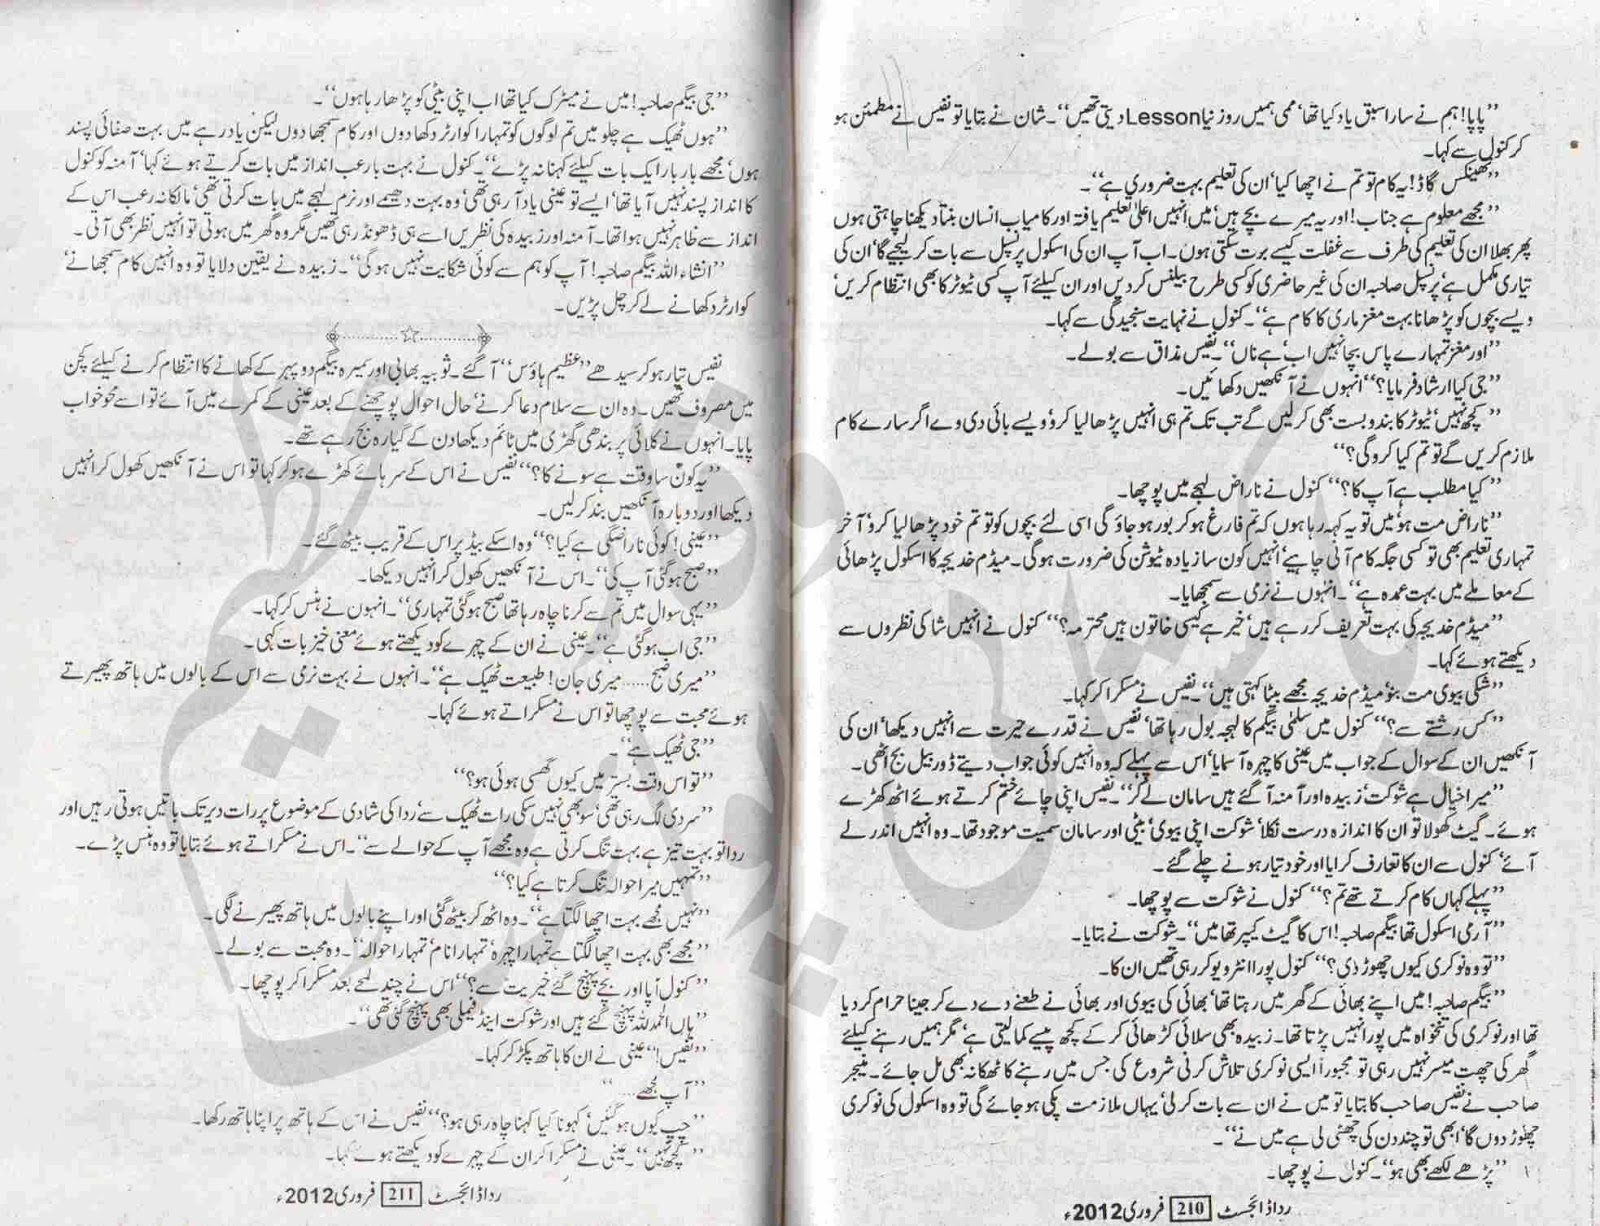 ”پاپا! ہم نے سارا سبق یاد کیا تھا‘ ممی ہمیں روز نیا Lesson دیتی تھیں“۔ شان نے بتایا تو نفیس نے مطمئن ہو
کر کنول سے کہا۔
”تھینکس گاڈ! یہ کام تو تم نے اچھا کیا‘ ان کی تعلیم بہت ضروری ہے“۔
”مجھے معلوم ہے جناب! اور یہ میرے بچے ہیں‘ میں انہیں اعلیٰ تعلیم یافتہ اور کامیاب انسان بنتا دیکھنا چاہتی ہوں
پھر بھلا ان کی تعلیم کی طرف سے غفلت کیسے برت سکتی ہوں۔ اب آپ ان کی اسکول پرنسپل سے بات کر لیجیے گا‘ ان کی
تیاری مکمل ہے‘ پرنسپل صاحبہ ان کی غیر حاضری کو کسی طرح بیلنس کر دیں اور ان کیلئے آپ کسی ٹیوٹر کا بھی انتظام کریں‘
ویسے بچوں کو پڑھانا بہت مغز ماری کا کام ہے“۔ کنول نے نہایت سنجیدگی سے کہا۔
”اور مغز تمہارے پاس بچا نہیں اب‘ ہے ناں“۔ نفیس مذاق سے بولے۔
”جی کیا ارشاد فرمایا؟“ انہوں نے آنکھیں دکھائیں۔
”کچھ نہیں‘ ٹیوٹر کا بندوبست بھی کر لیں گے تب تک تم ہی انہیں پڑھا لیا کرو‘ ویسے بائی دی وے اگر سارے کام
ملازم کریں گے تو تم کیا کرو گی؟“
”کیا مطلب ہے آپ کا؟“ کنول نے ناراض لہجے میں پوچھا۔
”ناراض مت ہو‘ میں تو یہ کہہ رہا ہوں کہ تم فارغ ہو کر بور ہو جاؤ گی اسی لئے بچوں کو تو تم خود پڑھا لیا کرو‘ آخر
تمہاری تعلیم بھی تو کسی جگہ کام آنی چاہیے‘ انہیں کون سا زیادہ ٹیوشن کی ضرورت ہو گی۔ میڈم خدیجہ کا اسکول پڑھائی
کے معاملے میں بہت عمدہ ہے“۔ انہوں نے نرمی سے سمجھایا۔
”میڈم خدیجہ کی بہت تعریف کر رہے ہیں‘ خیر ہے کیسی خاتون ہیں محترمہ؟“ کنول نے انہیں شاکی نظروں سے
دیکھتے ہوئے کہا۔
”شکی بیوی مت بنو‘ میڈم خدیجہ مجھے بیٹا کہتی ہیں“۔ نفیس نے مسکرا کر کہا۔
”کس رشتے سے؟“ کنول میں سلمٰی بیگم کا لہجہ بول رہا تھا‘ نفیس نے قدرے حیرت سے انہیں دیکھا‘ ان کی
آنکھیں ان کے سوال کے جواب میں عینی کا چہرہ آ سمایا‘ اس سے پہلے کہ وہ انہیں کوئی جواب دیتے ڈور بیل بج اٹھی۔
”میرا خیال ہے شوکت‘ زبیدہ اور آمنہ آ گئے ہیں سامان لے کر“۔ نفیس اپنی چائے ختم کرتے ہوئے اٹھ کھڑے
ہوئے۔ گیٹ کھولا تو ان کا اندازہ درست نکلا‘ شوکت اپنی بیوی‘ بیٹی اور سامان سمیت موجود تھا۔ وہ انہیں اندر لے
آئے‘ کنول سے ان کا تعارف کرایا اور خود تیار ہونے چلے گئے۔
”پہلے کہاں کام کرتے تھے تم؟“ کنول نے شوکت سے پوچھا۔
”آرمی اسکول تھا بیگم صاحبہ! اس کا گیٹ کیپر تھا میں“۔ شوکت نے بتایا۔
”تو وہ نوکری کیوں چھوڑ دی؟“ کنول پورا انٹرویو کر رہی تھیں ان کا۔
”بیگم صاحبہ! میں اپنے بھائی کے گھر میں رہتا تھا‘ بھائی کی بیوی اور بھائی نے طعنے دے دے کر جینا حرام کر دیا
تھا اور نوکری کی تنخواہ میں پورا نہیں پڑتا تھا۔ زبیدہ بھی سلائی کڑھائی کر کے کچھ پیسے کما لیتی ہے‘ مگر ہمیں رہنے کیلئے
گھر کی چھت میسر نہیں رہی تو مجبوراً ایسی نوکری تلاش کرنی شروع کی جس میں رہنے کا ٹھکانہ بھی مل جائے۔ منیجر
صاحب نے نفیس صاحب کا بتایا تو میں نے ان سے بات کر لی‘ یہاں ملازمت پکی ہو جائے گی تو وہ اسکول کی نوکری
چھوڑ دوں گا‘ ابھی تو چند دن کی چھٹی لی ہے میں نے“۔
”پڑھے لکھے بھی ہو“۔ کنول نے پوچھا۔
ردا ڈائجسٹ 210 فروری 2012ء
”جی بیگم صاحبہ! میں نے میٹرک کیا تھا اب اپنی بیٹی کو پڑھا رہا ہوں“۔
”ہوں ٹھیک ہے چلو میں تم لوگوں کو تمہارا کوارٹر دکھا دوں اور کام سمجھا دوں لیکن یاد رہے میں بہت صفائی پسند
ہوں‘ مجھے بار بار ایک بات کیلئے کہنا نہ پڑے“۔ کنول نے بہت بارعب انداز میں بات کرتے ہوئے کہا‘ آمنہ کو کنول
کا انداز پسند نہیں آیا تھا‘ ایسے تو عینی یاد آ رہی تھی‘ وہ بہت دھیمے اور نرم لہجے میں بات کرتی تھی‘ مالکانہ رعب اس کے
انداز سے ظاہر نہیں ہوا تھا۔ آمنہ اور زبیدہ کی نظریں اسے ہی ڈھونڈ رہی تھیں مگر وہ گھر میں ہوتی تو انہیں نظر بھی آتی۔
”انشاء اللہ بیگم صاحبہ! آپ کو ہم سے کوئی شکایت نہیں ہو گی“۔ زبیدہ نے یقین دلایا تو وہ انہیں کام سمجھانے‘
کوارٹر دکھانے لے کر چل پڑیں۔
نفیس تیار ہو کر سیدھے ”عظیم ہاؤس“ آ گئے۔ ثوبیہ بھابی اور سمیرہ بیگم دوپہر کے کھانے کا انتظام کرنے کیلئے کچن
میں مصروف تھیں۔ وہ ان سے سلام دعا کرنے‘ حال احوال پوچھنے کے بعد عینی کے کمرے میں آئے تو اسے محو خواب
پایا۔ انہوں نے کلائی پر بندھی گھڑی میں ٹائم دیکھا دن کے گیارہ بج رہے تھے۔
”یہ کون سا وقت ہے سونے کا؟“ نفیس نے اس کے سرہانے کھڑے ہو کر کہا تو اس نے آنکھیں کھول کر انہیں
دیکھا اور دوبارہ آنکھیں بند کر لیں۔
”عینی! کوئی ناراضگی ہے کیا؟“ وہ اسکے بیڈ پر اس کے قریب بیٹھ گئے۔
”صبح ہو گئی آپ کی“۔ اس نے آنکھیں کھول کر انہیں دیکھا۔
”یہی سوال میں تم سے کرنا چاہ رہا تھا صبح ہو گئی تمہاری“۔ انہوں نے ہنس کر کہا۔
”جی اب ہو گئی ہے“۔ عینی نے ان کے چہرے کو دیکھتے ہوئے معنی خیز بات کہی۔
”میری صبح...... میری جان! طبیعت ٹھیک ہے“۔ انہوں نے بہت نرمی سے اس کے بالوں میں ہاتھ پھیرتے
ہوئے محبت سے پوچھا تو اس نے مسکراتے ہوئے کہا۔
”جی ٹھیک ہے“۔
”تو اس وقت بستر میں کیوں گھسی ہوئی ہو؟“
”سردی لگ رہی تھی‘ سو بھی نہیں سکی رات ٹھیک سے‘ ردا کی شادی کے موضوع پر رات دیر تک باتیں ہوتی رہیں اور
ردا تو بہت تیز ہے بہت تنگ کرتی ہے وہ مجھے آپ کے حوالے سے“۔ اس نے مسکراتے ہوئے بتایا تو وہ ہنس پڑے۔
”تمہیں میرا حوالہ تنگ کرتا ہے کیا؟“
”نہیں مجھے بہت اچھا لگتا ہے“۔ وہ اٹھ کر بیٹھ گئی اور اپنے بالوں میں ہاتھ پھیرنے لگی۔
”مجھے بھی بہت اچھا لگتا ہے تمہارا چہرہ‘ تمہارا نام‘ تمہارا حوالہ“۔ وہ محبت سے بولے۔
”کنول آپا اور بچے پہنچ گئے خیریت سے؟“ اس نے چند لمحے بعد مسکرا کر پوچھا۔
”ہاں الحمدللہ پہنچ گئے ہیں اور شوکت اینڈ فیملی بھی پہنچ گئی تھی“۔
”نفیس!“ عینی نے ان کا ہاتھ پکڑ کر کہا۔
”آپ مجھے......“
”چپ کیوں ہو گئیں‘ کہو نا کیا کہنا چاہ رہی ہو؟“ نفیس نے اس کے ہاتھ پر اپنا ہاتھ رکھا۔
”کچھ نہیں“۔ عینی نے مسکرا کر ان کے چہرے کو دیکھتے ہوئے کہا۔
ردا ڈائجسٹ 211 فروری 2012ء